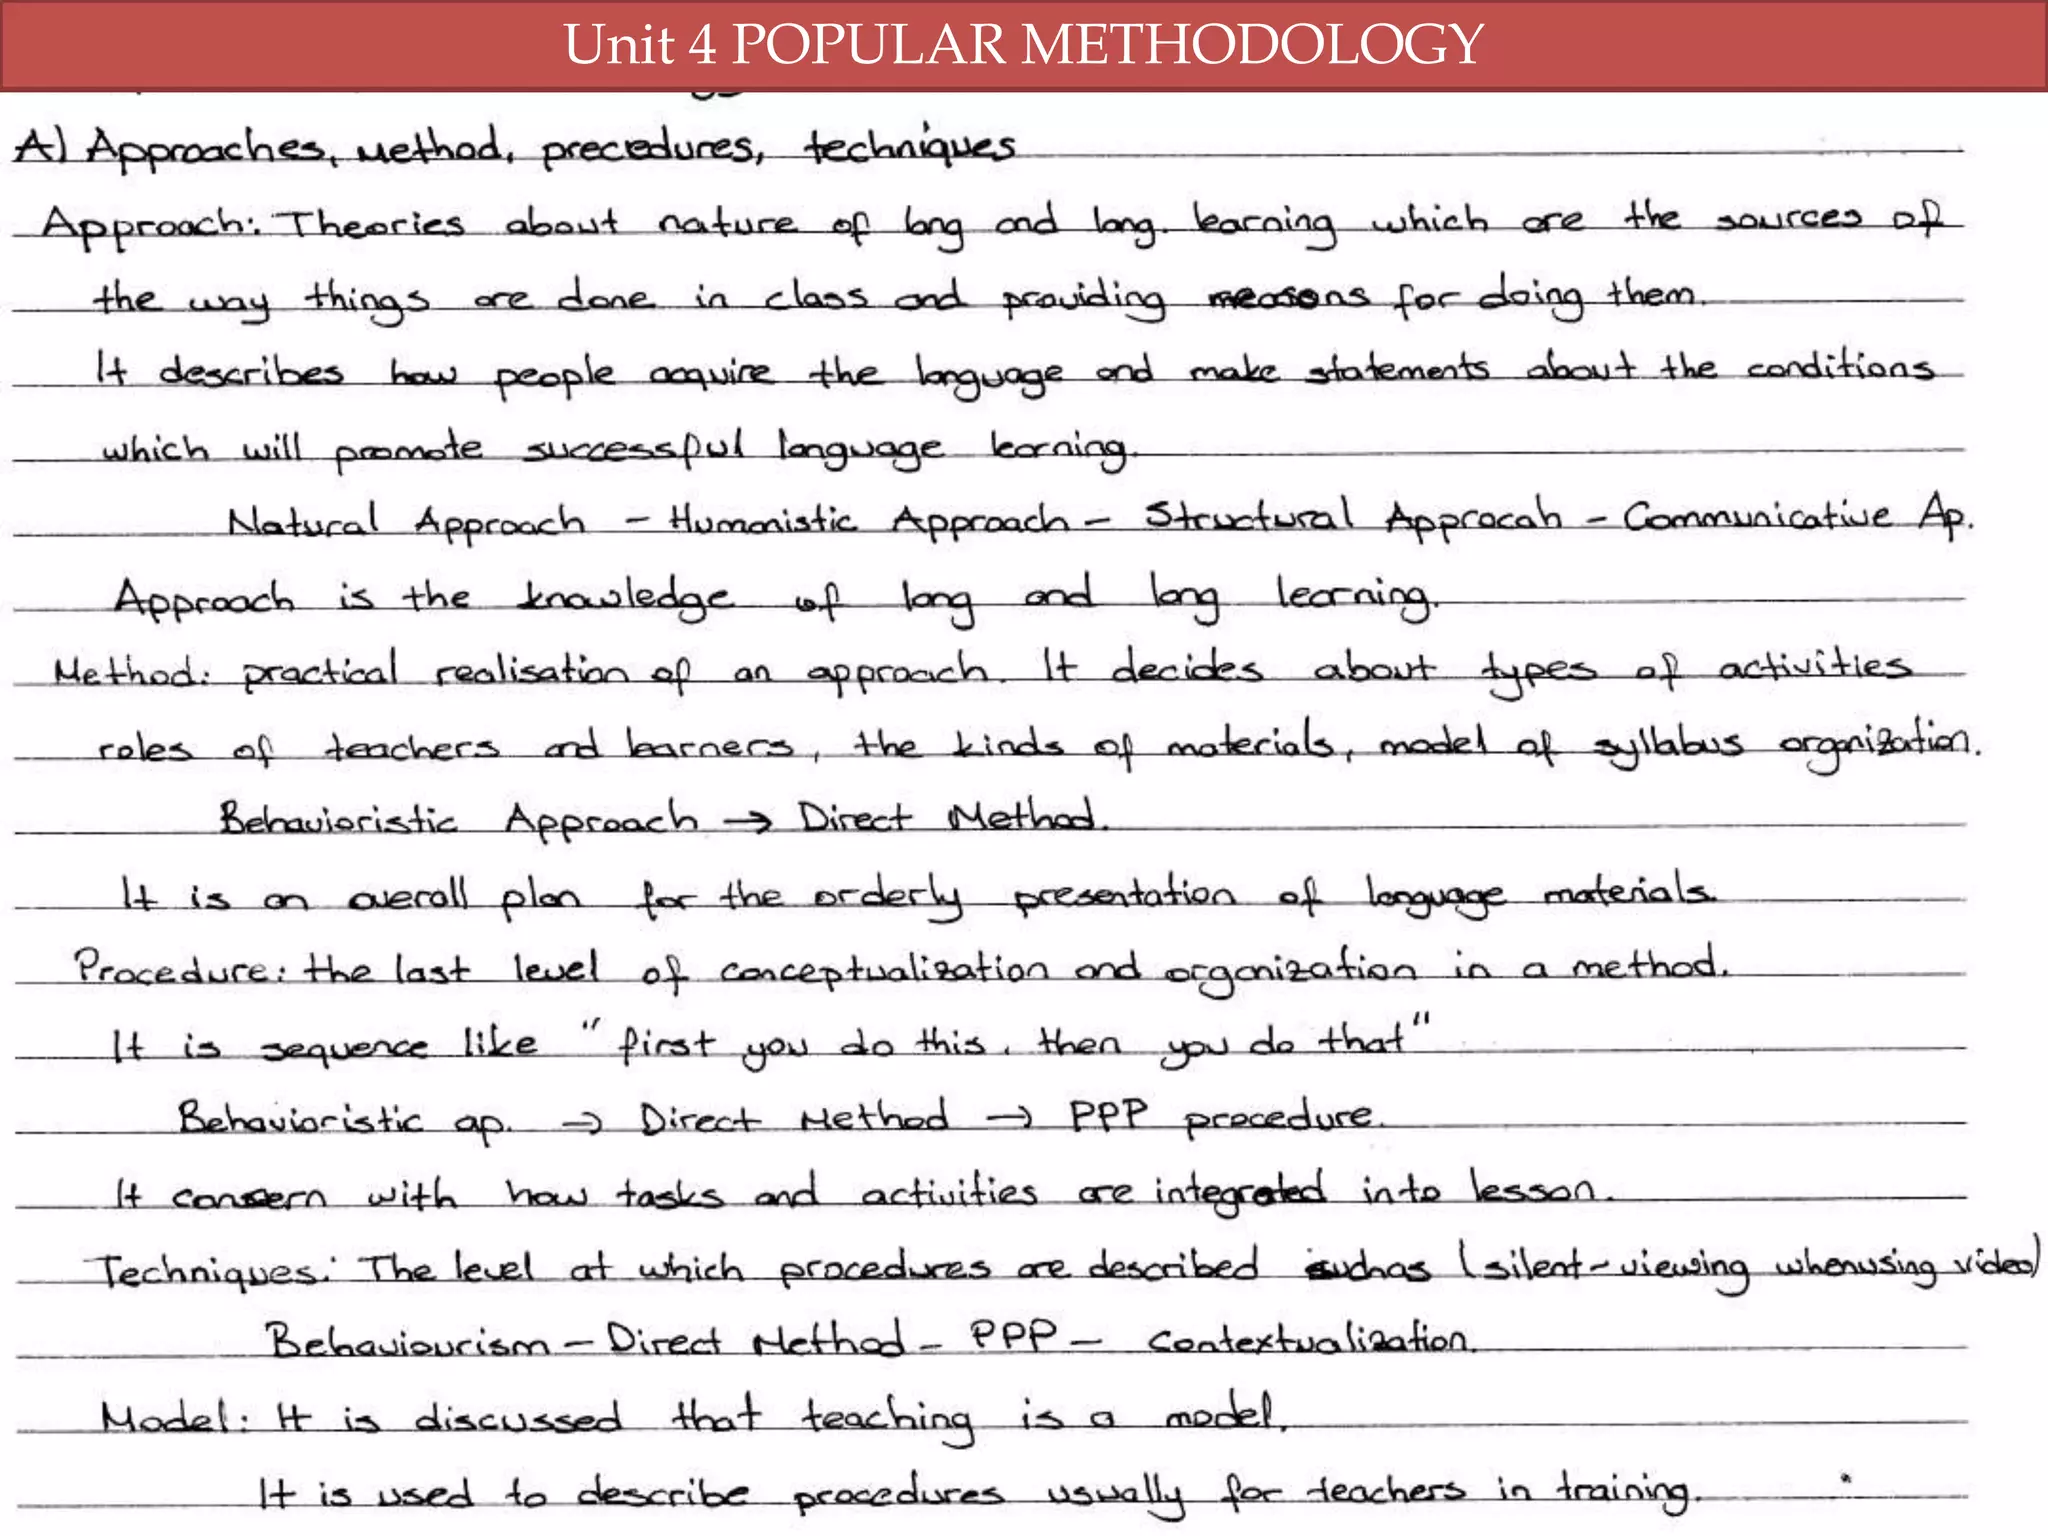 Unit 4 POPULAR METHODOLOGY
A) Approaches, Method, precedures, techniques
Approach: Theories about nature of lang and lang. learning which are the sources of
the way things are done in class and providing reasons for doing them.
It describes how people acquire the language and make statements about the conditions
which will promote successful language learning.
Natural Approach - Humanistic Approach - Structural Approcah - Communicative Ap.
Approach is the knowledge of lang and lang learning.
Method: practical realisation of an approach. It decides about types of activities
roles of teachers and learners, the kinds of materials, model of syllabus organization.
Behavioristic Approach → Direct Method.
It is an overall plan for the orderly presentation of language materials.
Procedure: the last level of conceptualization and organization in a method.
It is sequence like "first you do this, then you do that"
Behavioristic ap. → Direct Method → PPP procedure.
It concern with how tasks and activities are integrated into lesson.
Techniques: The level at which procedures are described such as (silent-viewing when using video)
Behaviourism - Direct Method - PPP - Contextualization.
Model: It is discussed that teaching is a model.
It is used to describe procedures usually for teachers in training.